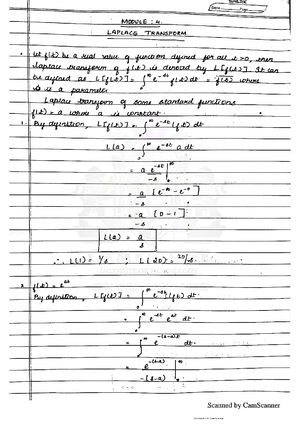 MODULE : 4.
LAPLACE TRANSFORM
Let f(t) be a real value of function defined for all t>0, then
laplace transform of f(t) is denoted by L[f(t)]. It can
be defined as L[f(t)] = ∫₀^∞ e^-st f(t) dt = f(s) where
's' is a parameter
Laplace transform of some standard functions
f(t) = a where a is constant.
1. By definition, L[f(t)] = ∫₀^∞ e^-st (f t) dt
L(a) = ∫₀^∞ e^-st a dt
= a e^-st / -s |₀^∞
= a / -s [e^-∞ - e^-0]
= a / -s [0 - 1]
L(a) = a / s
∴ L(1) = 1/s ; L(20) = 20/s.
2. f(t) = e^at
By definition, L[f(t)] = ∫₀^∞ e^-st (f t) dt.
= ∫₀^∞ e^-st e^at dt
= ∫₀^∞ e^-(s-a)t dt
= e^-(s-a) / -(s-a) |₀^∞
Scanned by CamScanner